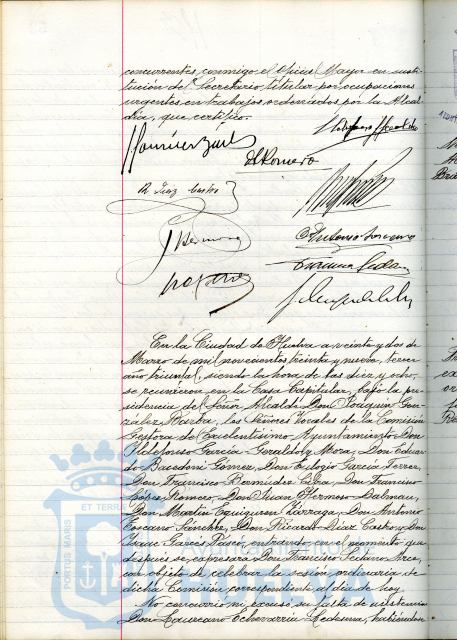 concurrentes, conmigo el Oficial Mayor en susti-
tución del Secretario titular por ocupaciones
urgentes en trabajos ordenados por la Alcal-
día, que certifico.
M Romero
R Diaz Castro
En la Ciudad de Huelva a veinte y dos de
Marzo de mil novecientos treinta y nueve, tercer
año triunfal, siendo la hora de las diez y ocho,
se reunieron en la Casa Capitular, bajo la pre-
sidencia del Señor Alcalde Don Joaquín Gon-
zález Barba, los Señores Vocales de la Comisión
Gestora del Excelentísimo Ayuntamiento, Don
Ildefonso García Geraldo y Mora, Don Eduar-
do Gómez, Don Eulogio García
Don Francisco Bermúdez Don Francisco
López Romero, Don Juan Hermoso Dalmau,
Don Martín Don Antonio
Toscano Sánchez, Don Ricardo Díaz Castro y Don
Garcés Pascó, entrando en el momento que
después se expresará Don Francisco
con objeto de celebrar la sesión ordinaria de
dicha Comisión correspondiente al día de hoy
No concurrió ni excusó su falta de asistencia
Don Echevarría Ledesma, habiendo
PORTUS MARIS
ET TERRAE
Ayuntamiento de